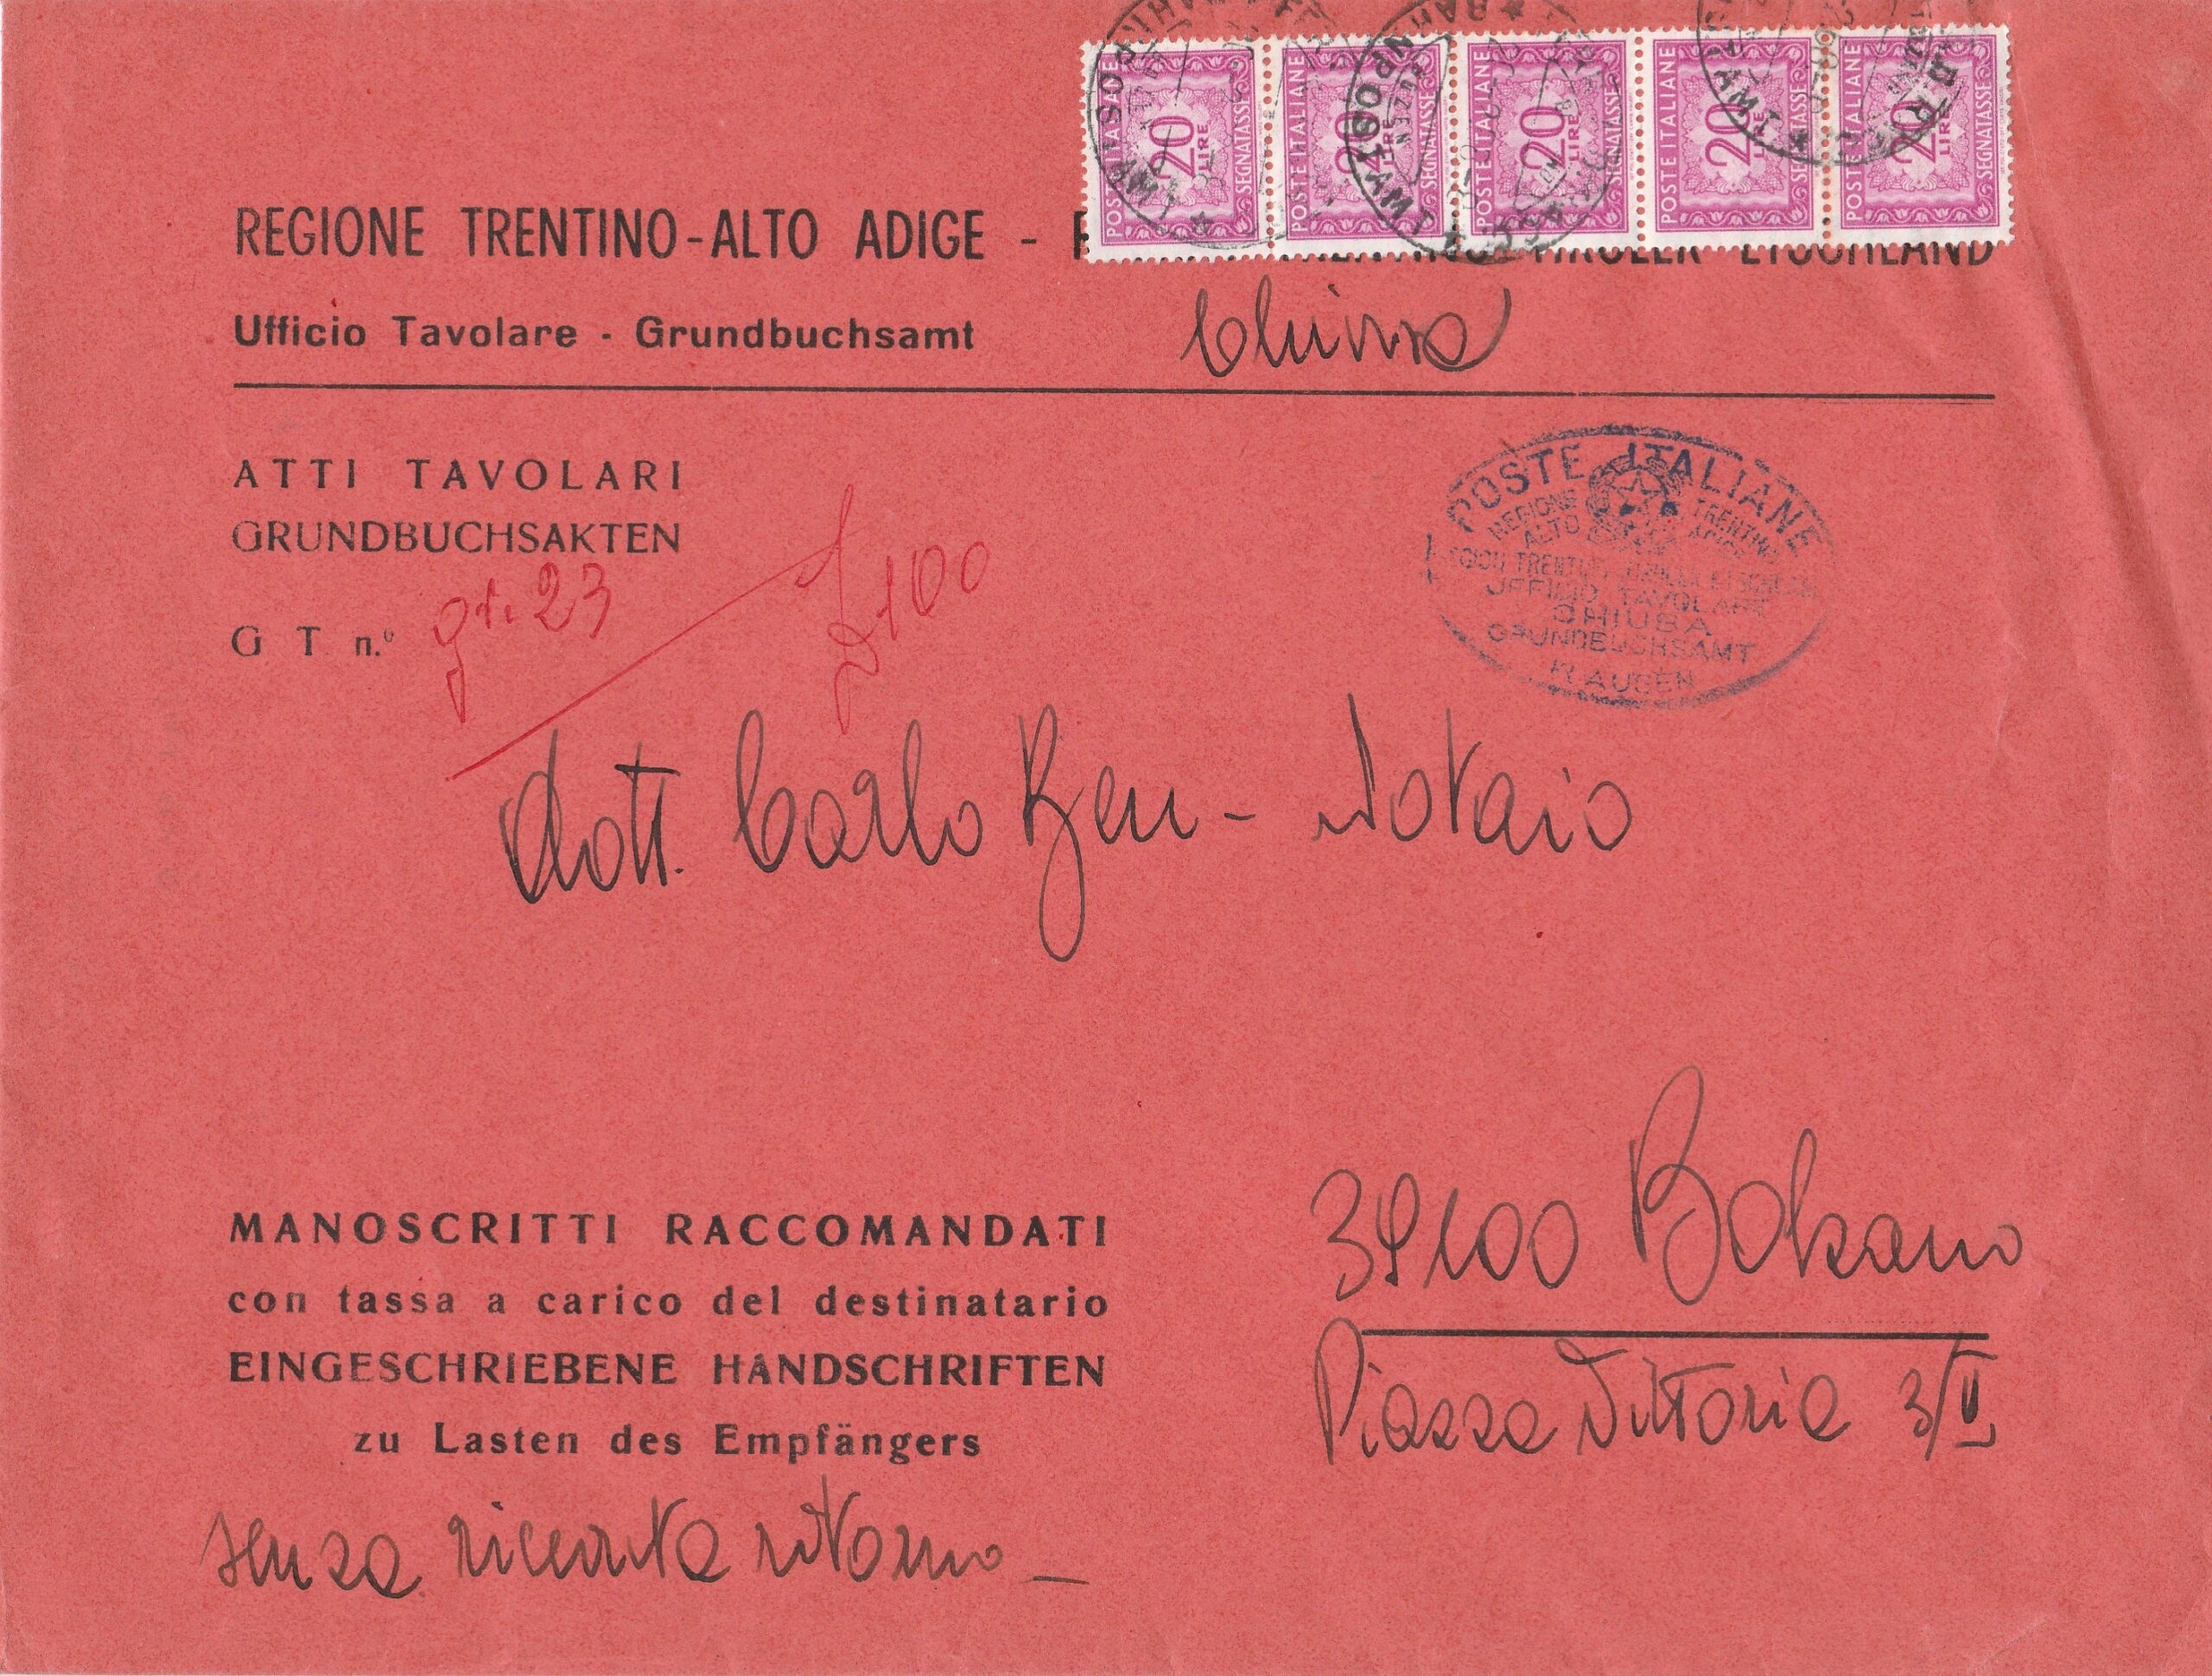 POSTE ITALIANE 20 LIRE SEGNATASSE
POSTE ITALIANE 20 LIRE SEGNATASSE
POSTE ITALIANE 20 LIRE SEGNATASSE
POSTE ITALIANE 20 LIRE SEGNATASSE
POSTE ITALIANE 20 LIRE SEGNATASSE
REGIONE TRENTINO-ALTO ADIGE - ETSCHLAND
Ufficio Tavolare - Grundbuchsamt Chiusa
ATTI TAVOLARI
GRUNDBUCHSAKTEN
G T n.° gr. 23 £ 100
POSTE ITALIANE
REGIONE TRENTINO
ALTO ADIGE
UFFICIO TAVOLARE
CHIUSA
GRUNDBUCHSAMT
KLAUSEN
dott. Carlo - Notaio
MANOSCRITTI RACCOMANDATI
con tassa a carico del destinatario
EINGESCHRIEBENE HANDSCHRIFTEN
zu Lasten des Empfängers
39100 Bolzano
Piazza Vittoria 3/II
senza ricevuta ritorno -